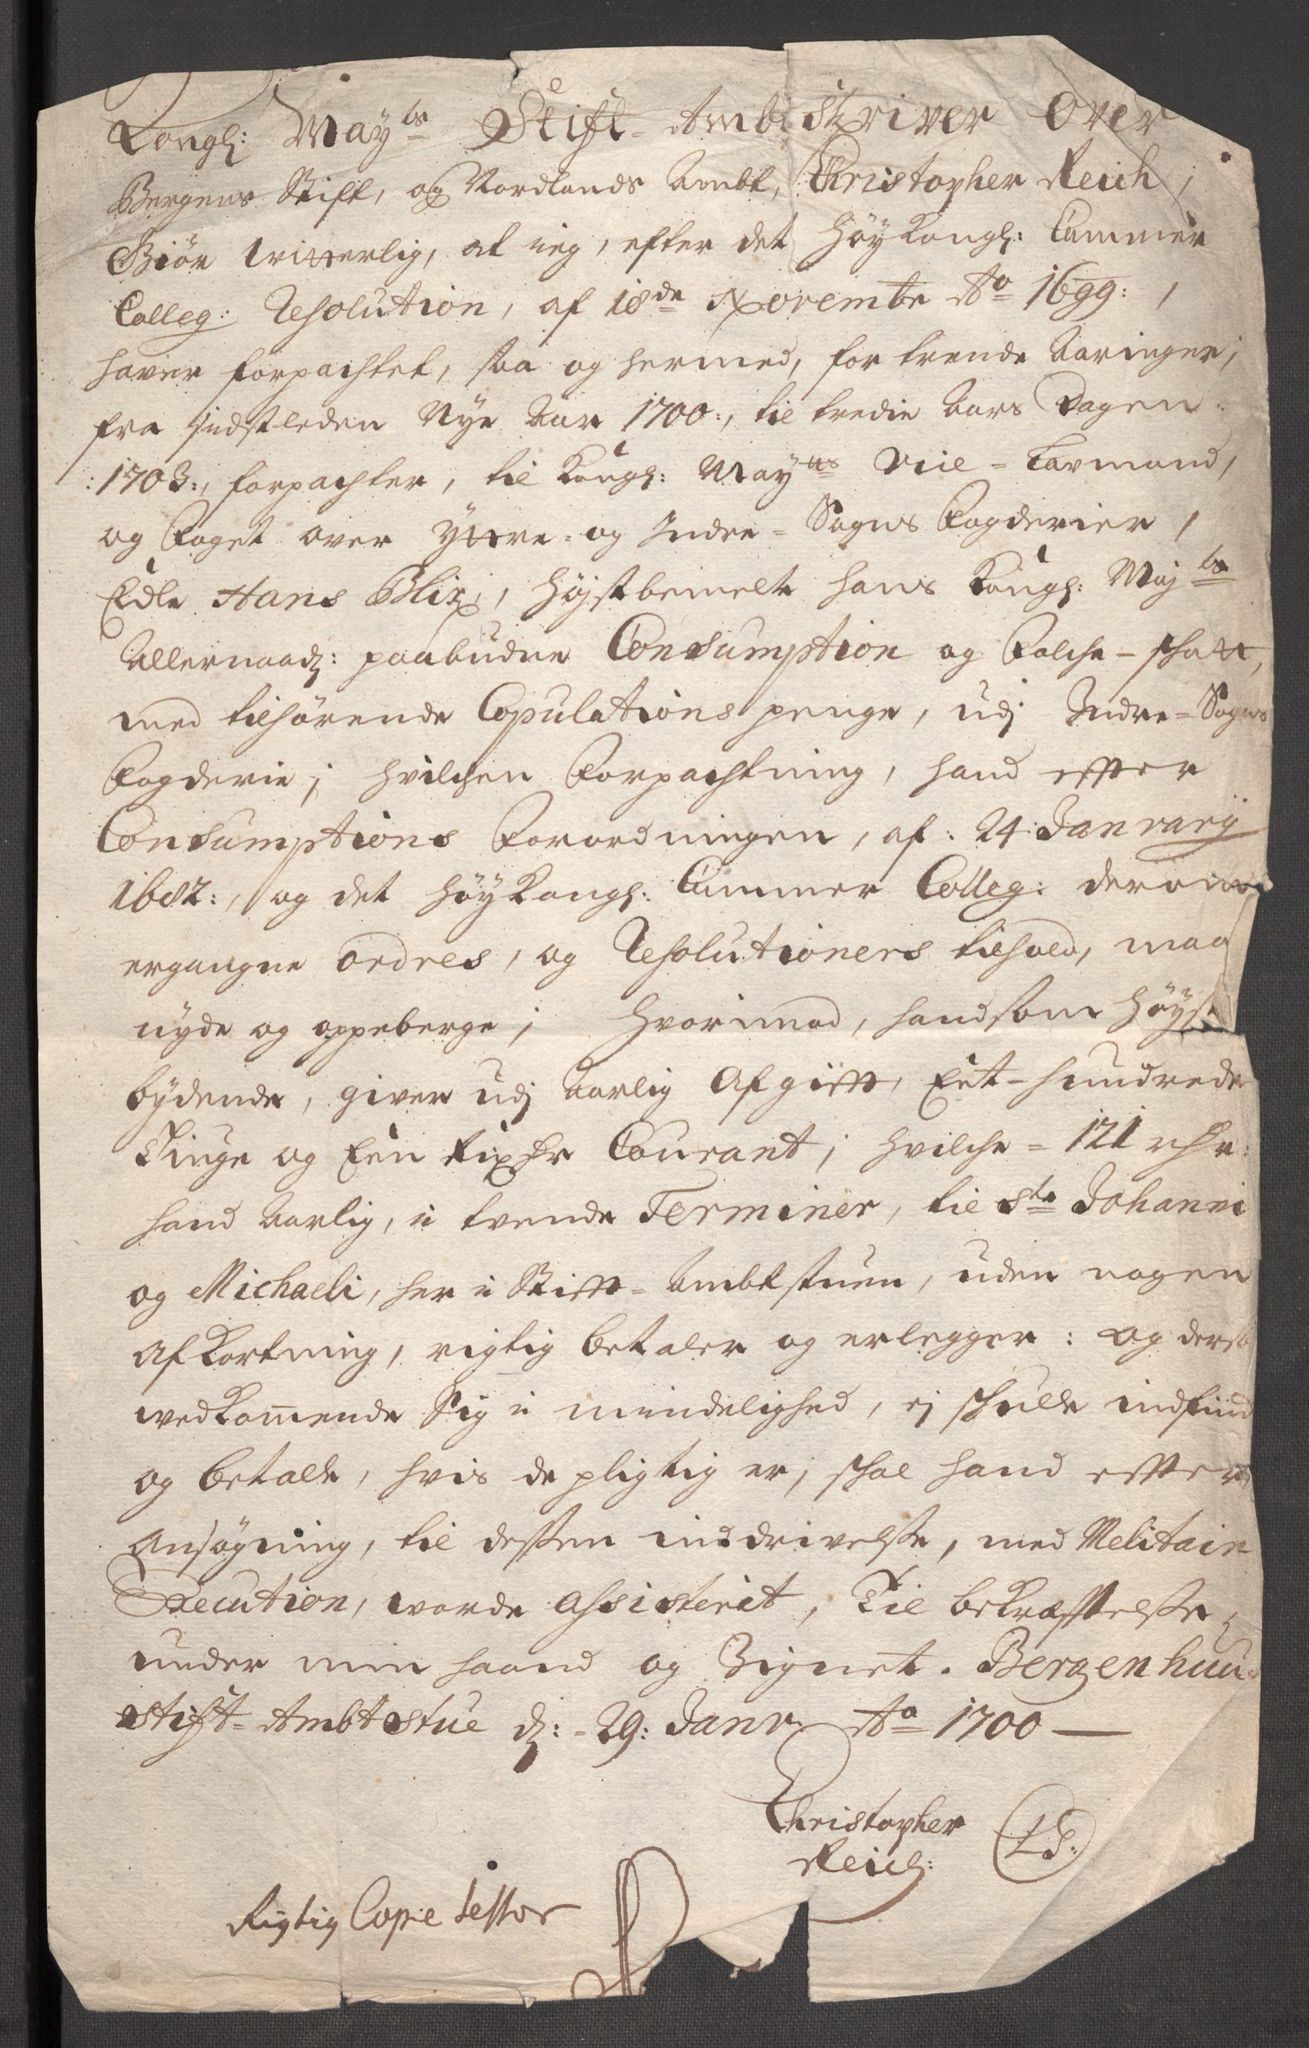 Kongl: May:ts Stift-Ambtskriver Over
Bergens Stift, og Nordlands Ambt, Christopher Reich,
Giør Witterlig, at ieg, efter det høy Kongl: Cammer
Colleg: Resolution, af 18de Novembr Ao 1699:,
haver forpachtet, saa og hermed, for trende Aaringer,
fra sidstleden Nye Aar 1700:, til tredie Aars Dagen
:1703:, forpachter, til Kongl: Mayts Vice-Lavmand,
og Foget over Yttre- og Indre-Sogns Fogderier,
Edle Hans Blix, Høystbemelte hans Kongl: Mayts
Allernaadz: paabudne Consumption og Folche-schatt,
med tilhørende Copulations penge, udj Indre-Sogns
Fogderie; hvilchen Forpachtning, hand efter
Consumptions Forordningen, af 24 Januarij
1682:, og det høy Kongl: Cammer Colleg: derom
ergangne ordres, og Resolutioners tilhold, maa
nyde og oppeberge; Hvorimod, hand som Høyst
bydende, giver udj Aarlig Afgifft, Eet-hundrede
Tiuge og Een Rixdr Courant; hvilche = 121 rdr:
hand Aarlig, i tvende Terminer, til Ste Johanni
og Michaeli, her i Stifft-Ambtstuen, uden nogen
Afkortning, rigtig betaler og erlegger: Og ders
vedkom̅ende Sig i mindelighed, ej schulde indfind
og betale, hvis de pligtig er, schal hand efter
Ansøgning, til dessen inddrivelse, med Melitair
Execution, worde assisterit, Til bekræfftelse,
under min haand og Zignet. Bergenhuus
Stift-Ambtstue dz: 29: Janv Ao 1700
Christopher
Reich: LS:
Rigtig Copie testor